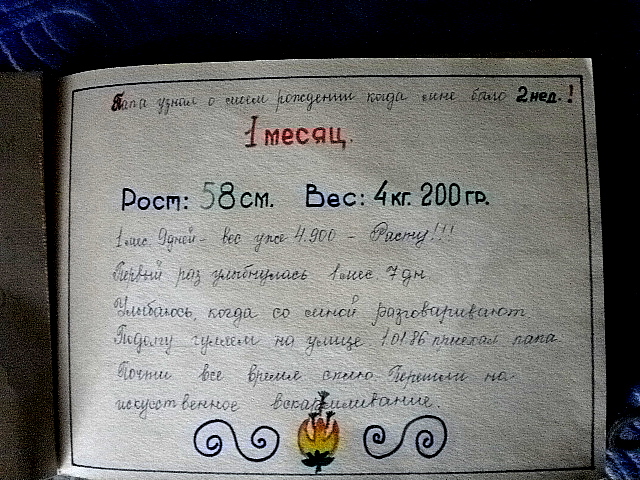 Папа узнал о моем рождении когда мне было 2 нед.!
1 месяц.
Рост: 58 см. Вес: 4 кг. 200 гр.
1 мес. 9 дней - вес уже 4.900 - Расту!!!
Первый раз улыбнулась 1 мес. 7 дн
Улыбаюсь, когда со мной разговаривают
Подолгу гуляем на улице 1.01.86 приехал папа
Почти все время сплю. Перешли на
искусственное вскармливание.